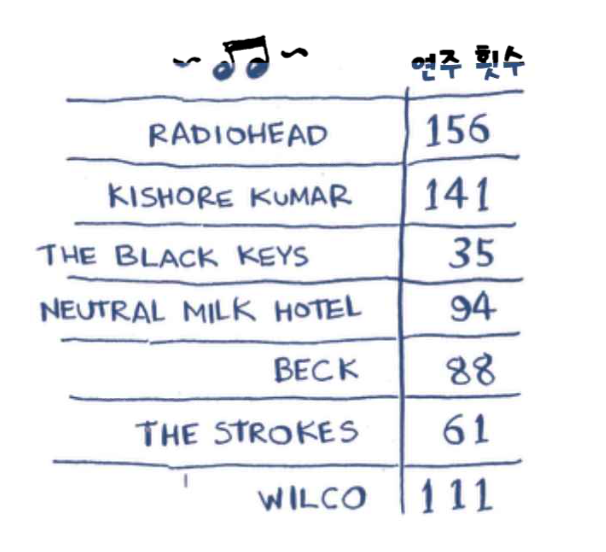 연주 횟수
RADIOHEAD 156
KISHORE KUMAR 141
THE BLACK KEYS 35
NEUTRAL MILK HOTEL 94
BECK 88
THE STROKES 61
WILCO 111